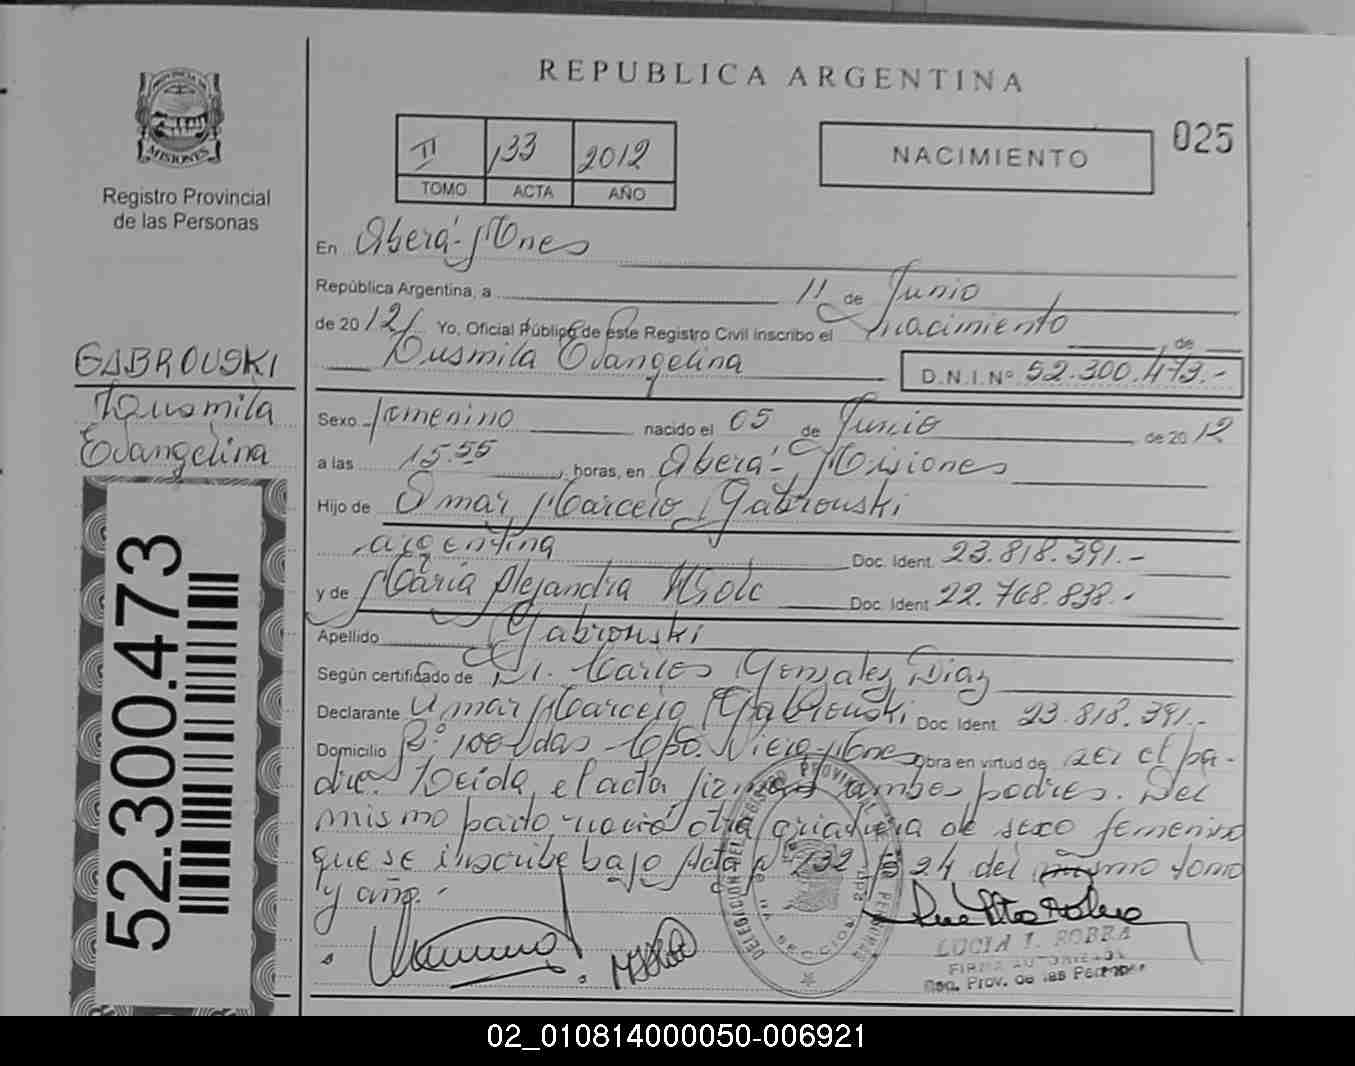 REPUBLICA ARGENTINA
PROVINCIA DE
MISIONES
Registro Provincial
de las Personas
II 133 2012
TOMO ACTA AÑO
NACIMIENTO
025
En Oberá-Mnes
República Argentina, a 11 de Junio
de 2012 Yo, Oficial Público de este Registro Civil inscribo el nacimiento de
Dusmila Evangelina D.N.I.Nº 52.300.473.-
GABROUSKI
Dusmila
Evangelina
Sexo femenino nacido el 05 de Junio de 2012
a las 15.55 horas, en Oberá-Misiones
Hijo de Omar Marcelo Gabrouski
argentina Doc. Ident. 23.818.391.-
y de María Alejandra Doc. Ident 22.768.838.-
Apellido Gabrouski
Según certificado de Dr. Carlos Gonzalez Diaz
Declarante Omar Marcelo Gabrouski Doc. Ident. 23.818.391.-
Domicilio Viera-Mnes Obra en virtud de ser el pa-
dre. Leída el acta firman ambos padres. Del
mismo parto nació otra criatura de sexo femenino
que se inscribe bajo Acta Nº 132 Fº 24 del mismo tomo
y año.-
52.300.473
LUCIA I. ROBRA
FIRMA AUTORIZADA
Reg. Prov. de las Personas
02_010814000050-006921